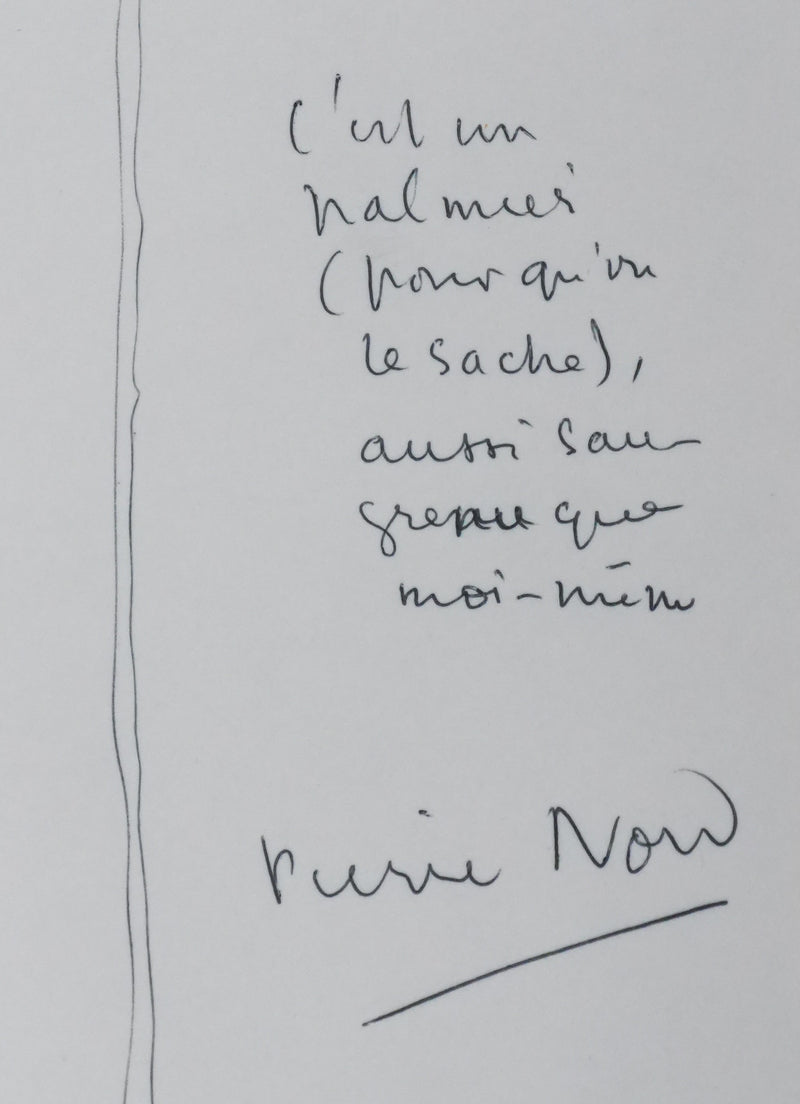 C'est un
palmier
(pour qu'on
le sache),
aussi sau-
grenu que
moi-même
Pierre Nord